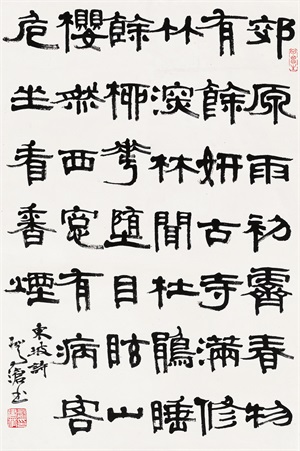 郊原雨初霽春物
有餘妍古寺滿修
竹深林聞杜鵑睡
餘桺華墮目眩山
櫻然西窓有病客
危坐看香煙
東坡詩